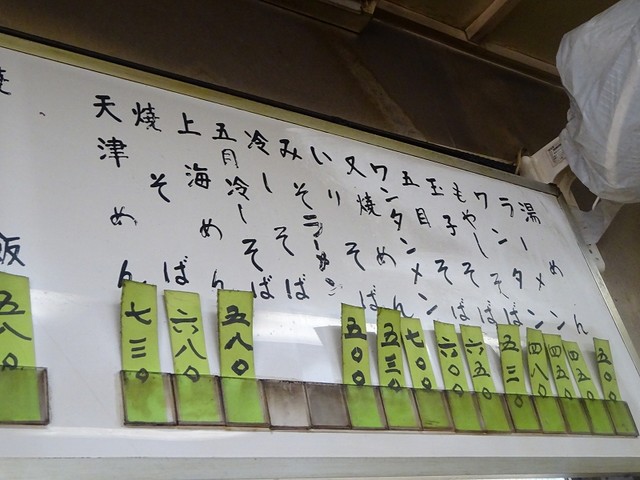 湯めん
ラーメン
ワンタン
もやしそば
玉子そば
五目そば
ワンタンメン
叉焼めん
いりそば
みそラーメン
冷しそば
五目冷しそば
上海めん
焼そば
天津めん
飯
五〇〇
四五〇
四五〇
四八〇
五三〇
六五〇
六〇〇
七〇〇
五三〇
五〇〇
五八〇
六八〇
七三〇
五八〇